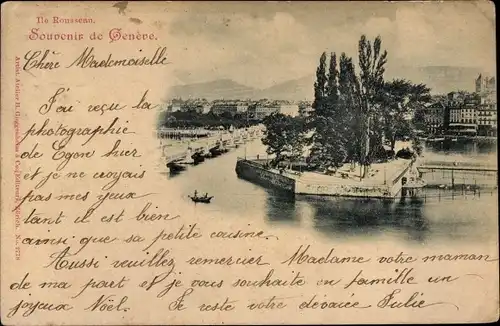 Ile Rousseau.
Souvenir de Genève.
Chère Mademoiselle
J'ai reçu la
photographie
de Egon hier
et je ne croyais
pas mes yeux
tant il est bien
ainsi que sa petite cousine.
Aussi veuillez remercier Madame votre maman
de ma part et je vous souhaite en famille un
joyeux Noël. Je reste votre dévouée Julie
Artist. Atelier H. Guggenheim & Co., Editeurs, Zürich. No.